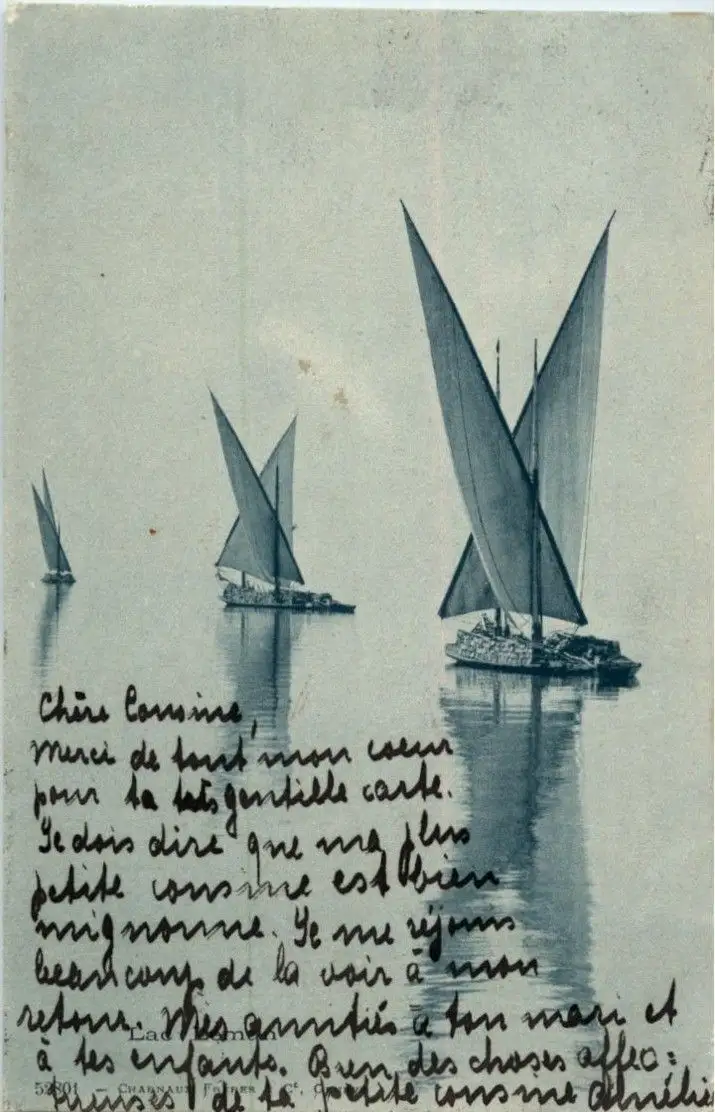 Chère Cousine,
Merci de tout mon coeur
pour ta très gentille carte.
Je dois dire que ma plus
petite cousine est bien
mignonne. Je me réjouis
beaucoup de la voir à mon
retour. Mes amitiés à ton mari et
Lac Léman
à tes enfants. Bien des choses affec=
52801 - Charnaux Frères & Cº, G
tueuses de ta petite cousine Amélie